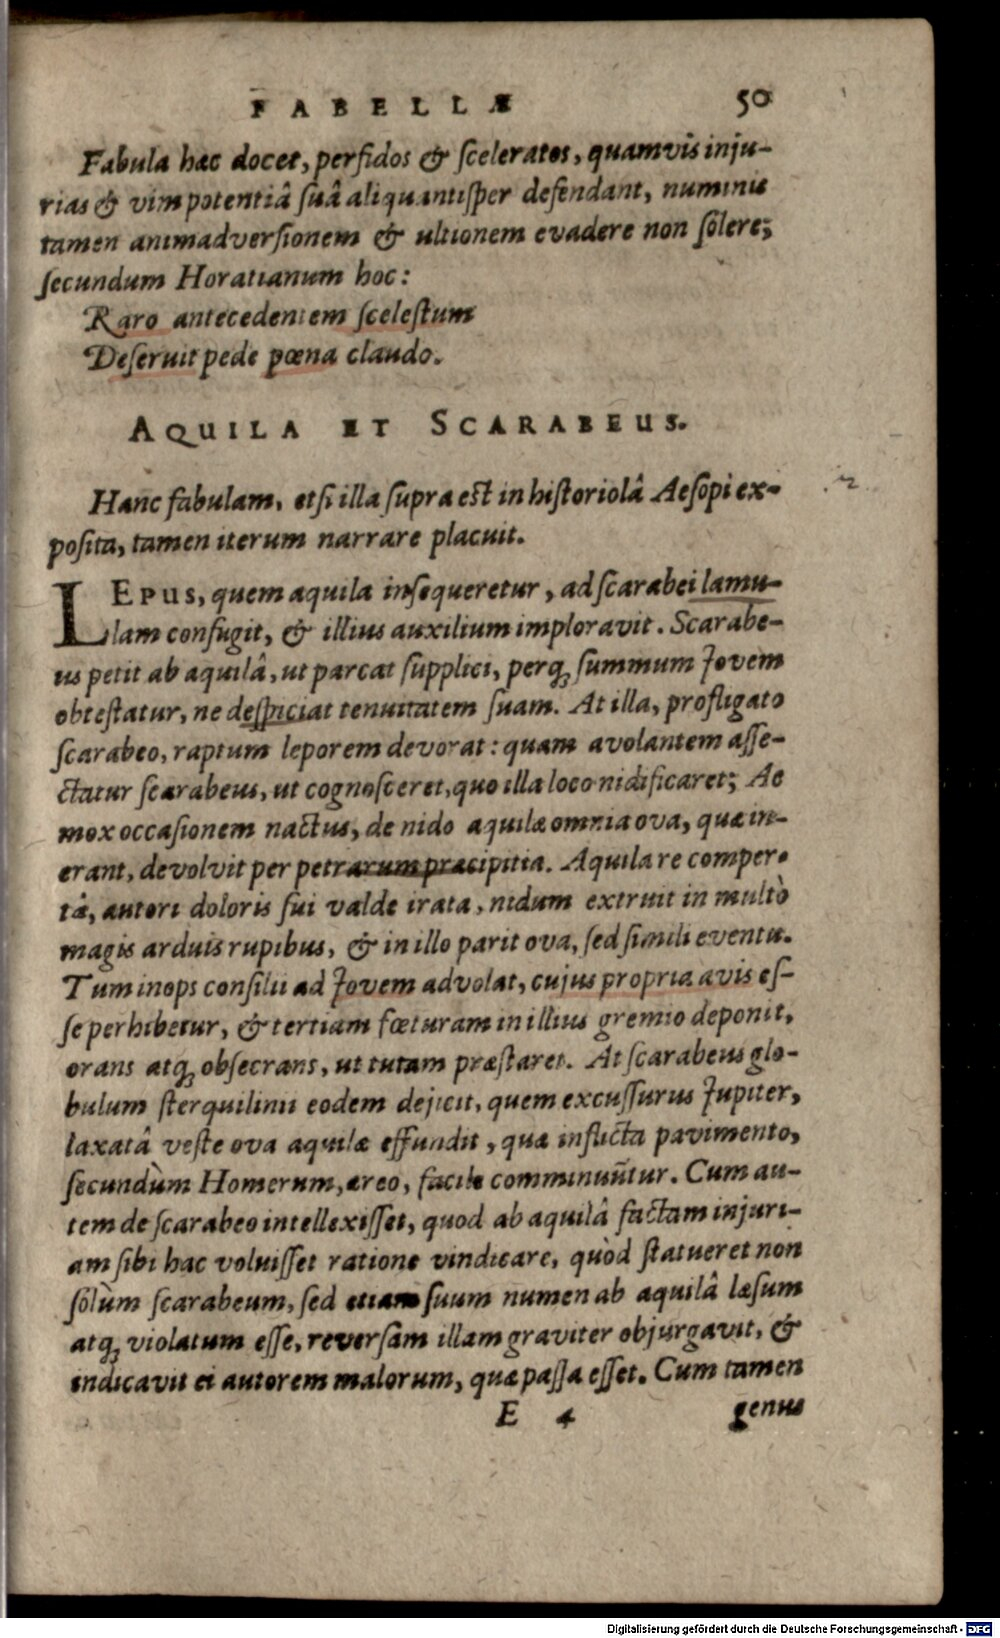 FABELLÆ 50
Fabula hac docet, perfidos & ſceleratos, quamvis inju-
rias & vim potentiâ ſuâ aliquantiſper defendant, numinis
tamen animadverſionem & ultionem evadere non ſolere;
ſecundum Horatianum hoc:
Raro antecedentem ſceleſtum
Deſeruit pede pœna claudo.
AQUILA ET SCARABEUS.
Hanc fabulam, etſi illa ſupra eſt in hiſtoriolâ Aeſopi ex-
poſita, tamen iterum narrare placuit.
LEPUS, quem aquila inſequeretur, ad ſcarabei lamu-
lam confugit, & illius auxilium imploravit. Scarabe-
us petit ab aquilâ, ut parcat ſupplici, perq́; ſummum Jovem
obteſtatur, ne deſpiciat tenuitatem ſuam. At illa, profligato
ſcarabeo, raptum leporem devorat: quam avolantem aſſe-
ctatur ſcarabeus, ut cognoſceret, quo illa loco nidificaret; Ac
mox occaſionem nactus, de nido aquilæ omnia ova, quæ in-
erant, devolvit per petrarum præcipitia. Aquila re comper-
tâ, autori doloris ſui valde irata, nidum extruit in multò
magis arduis rupibus, & in illo parit ova, ſed ſimili eventu.
Tum inops conſilii ad Jovem advolat, cujus propria avis eſ-
ſe perhibetur, & tertiam fœturam in illius gremio deponit,
orans atq́; obſecrans, ut tutam præſtaret. At ſcarabeus glo-
bulum ſterquilinii eodem dejicit, quem excuſſurus Jupiter,
laxatâ veſte ova aquilæ effundit, quæ inflicta pavimento,
ſecundùm Homerum, æreo, facile comminuũtur. Cum au-
tem de ſcarabeo intellexiſſet, quod ab aquilâ factam injuri-
am ſibi hac voluiſſet ratione vindicare, quòd ſtatueret non
ſolùm ſcarabeum, ſed etiam ſuum numen ab aquilâ læſum
atq́; violatum eſſe, reverſam illam graviter objurgavit, &
indicavit ei autorem malorum, quæ paſſa eſſet. Cum tamen
E 4 genus
Digitalisierung gefördert durch die Deutsche Forschungsgemeinschaft - DFG